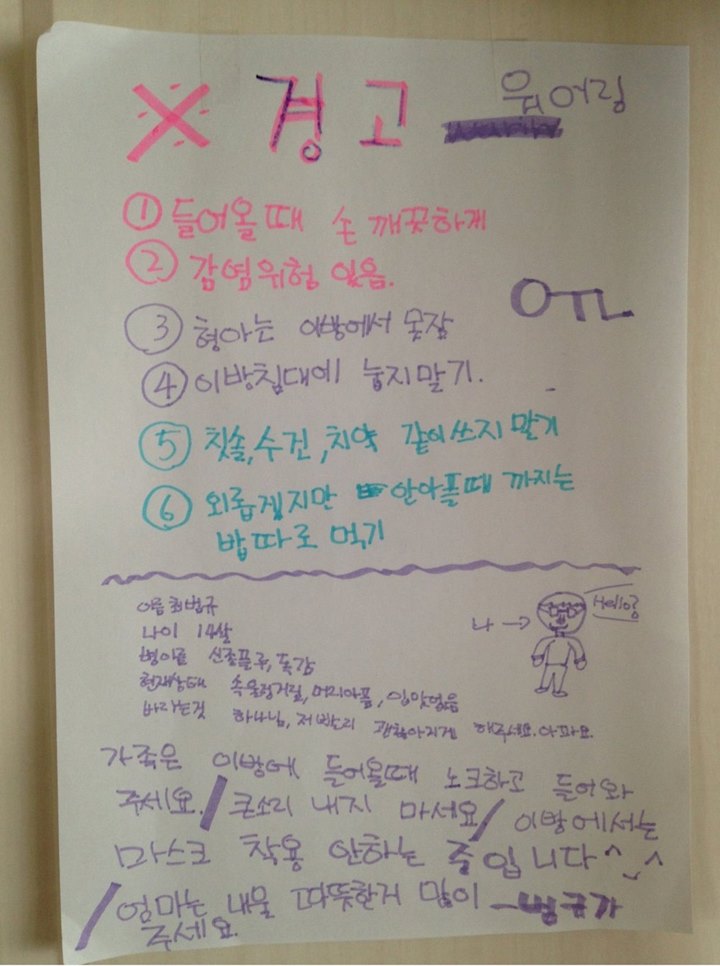 ※ 경고 워어링
① 들어올때 손 깨끗하게
② 감염위험 있음.
OTL
③ 형아는 이방에서 못잠
④ 이방침대에 눕지말기.
⑤ 칫솔,수건,치약 같이쓰지 말기
⑥ 외롭겠지만 안아플때 까지는
밥따로 먹기
이름 최범규
나이 14살
병이름 신종플루,독감
현재상태 속울렁거림,머리아픔,입맛없음
바라는것 하나님,저빨리 괜찮아지게 해주세요.아파요.
나→
Hello?
가족은 이방에 들어올때 노크하고 들어와
주세요/큰소리 내지 마세요/이방에서는
마스크 착용 안하는 중입니다^_^
/엄마는 내물 따뜻한거 많이 -범규가
주세요.